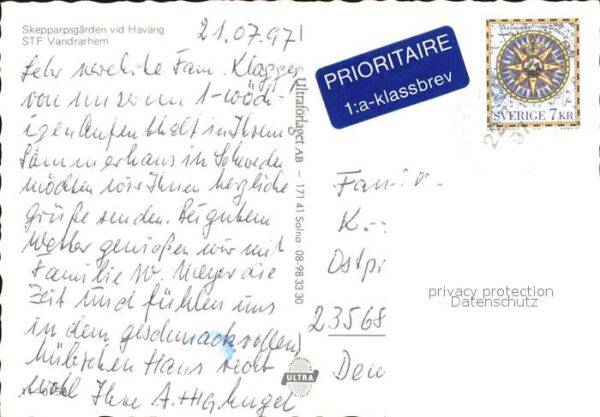 Skepparpsgården vid Haväng
STF Vandrarhem
21.07.97
Sehr verehrte Fam. Klagges
von unserem 1-wöch-
igen Aufenthalt in Ihrem
Sommerhaus in Schweden
möchten wir Ihnen herzliche
Grüße senden. Bei gutem
Wetter genießen wir mit
Familie W. Meyer die
Zeit und fühlen uns
in dem geschmackvollen,
hübschen Haus recht
wohl Ihre
Ultraförlaget AB - 171 41 Solna · 08-98 33 30
ULTRA
PRIORITAIRE
1:a-klassbrev
SVERIGE 7 KR
Fami
K
Ostp
privacy protection
Datenschutz
23568
Deu